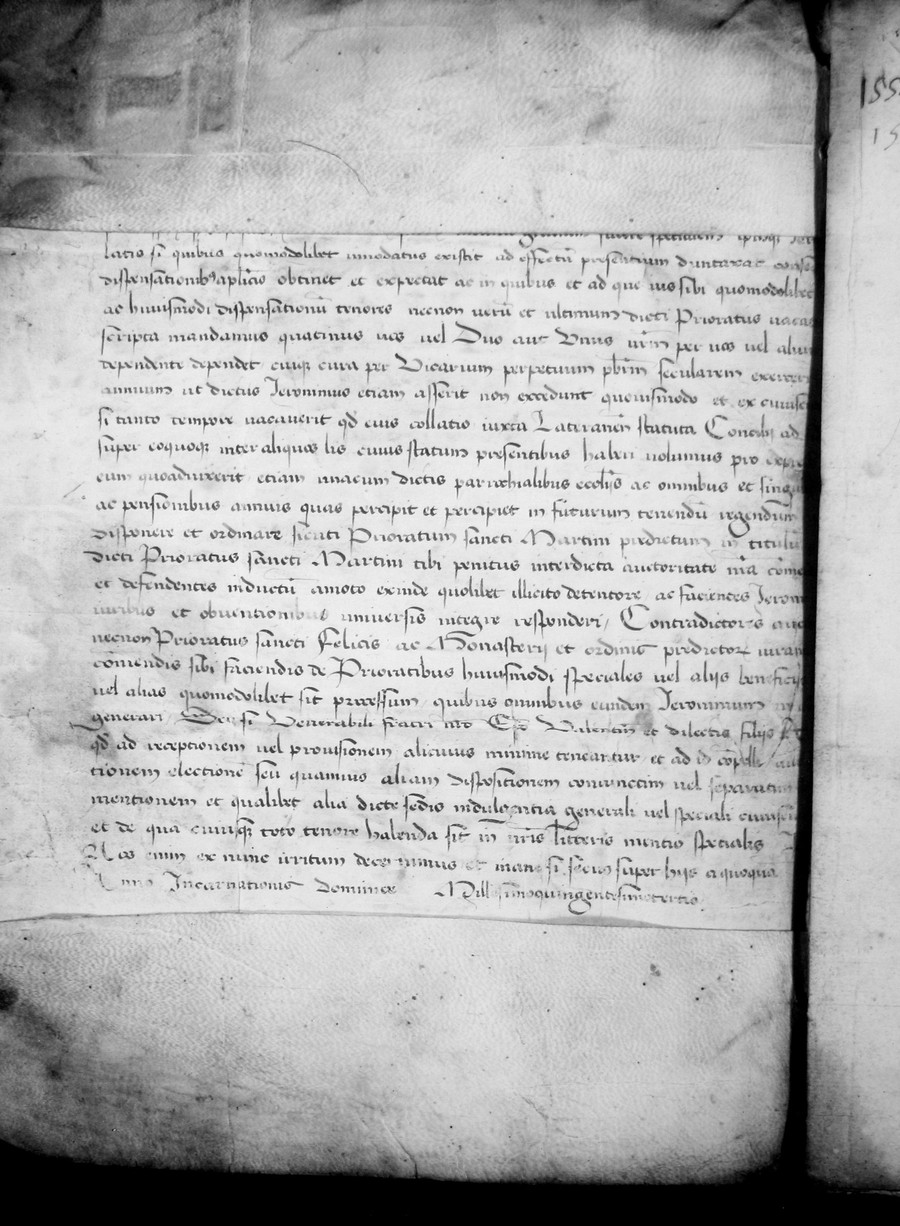 latio si quibus quomodolibet innodatus existit ad effectū presentium duntaxat
dispensationibꝰ aplicis obtinet et expectat ac in quibus et ad que ius sibi quomodolibet
ac huiusmodi dispensationū tenores necnon verū et ultimum dicti Prioratus
scripta mandamus quatinus vos vel Duo aut Unus vrm per vos vel
dependente dependet cuiusꝙ cura per Vicarium perpetuum pbrm secularem
annuum ut dictus Jeronimus etiam asserit non excedunt quovismodo et ex
si tanto tempore vacaverit qd eius collatio iuxta Lateranen statuta Concilij ad
super eoquoqꝫ inter aliquos lis cuius statum presentibus haberi volumus pro
eum quoadvixerit etiam unacum dictis parrochialibus ecclijs ac omnibus et
ac pensionibus annuis quas percipit et percipiet in futurum tenendū regendum
disponere et ordinare sicuti Prioratum sancti Martini predictum in
dicti Prioratus sancti Martini tibi penitus interdicta auctoritate nra
et defendentes inductū amoto exinde quolibet illicito detentore ac facientes
iuribus et obventionibus universis integre responderi Contradictores
necnon Prioratus sancti Felicis ac Monasterij et ordinis predictoꝝ
cōmendis sibi faciendis de Prioratibus huiusmodi speciales vel alijs
vel alias quomodolibet sit processum quibus omnibus eundem Jeronimum
generari Seu si Venerabili fratri nro Epo Valentin et dilectis filijs
qd ad receptionem vel provisionem alicuius minime teneantur et ad id
tionem electionē seu quamvis aliam dispositionem coniunctim vel
mentionem et qualibet alia dicte sedis indulgentia generali vel speciali
et de qua cuiusqꝫ toto tenore habenda sit in nris litteris mentio specialis
Nos enim ex nunc irritum decernimus et inane si secus super hijs a quoqua
Anno Incarnationis Dominice Millesimoquingentesimotertio